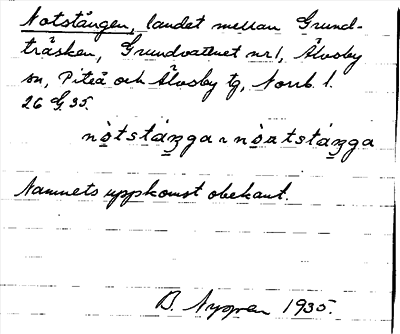 Notstången, landet mellan Grund-
träsken, Grundvattnet nr 1, Älvsby
sn, Piteå och Älvsby tg, Norrb. l.
26 G 35.
nòtstáŋga ~ nòatstáŋga
Namnets uppkomst obekant.
B. Nygren 1935.